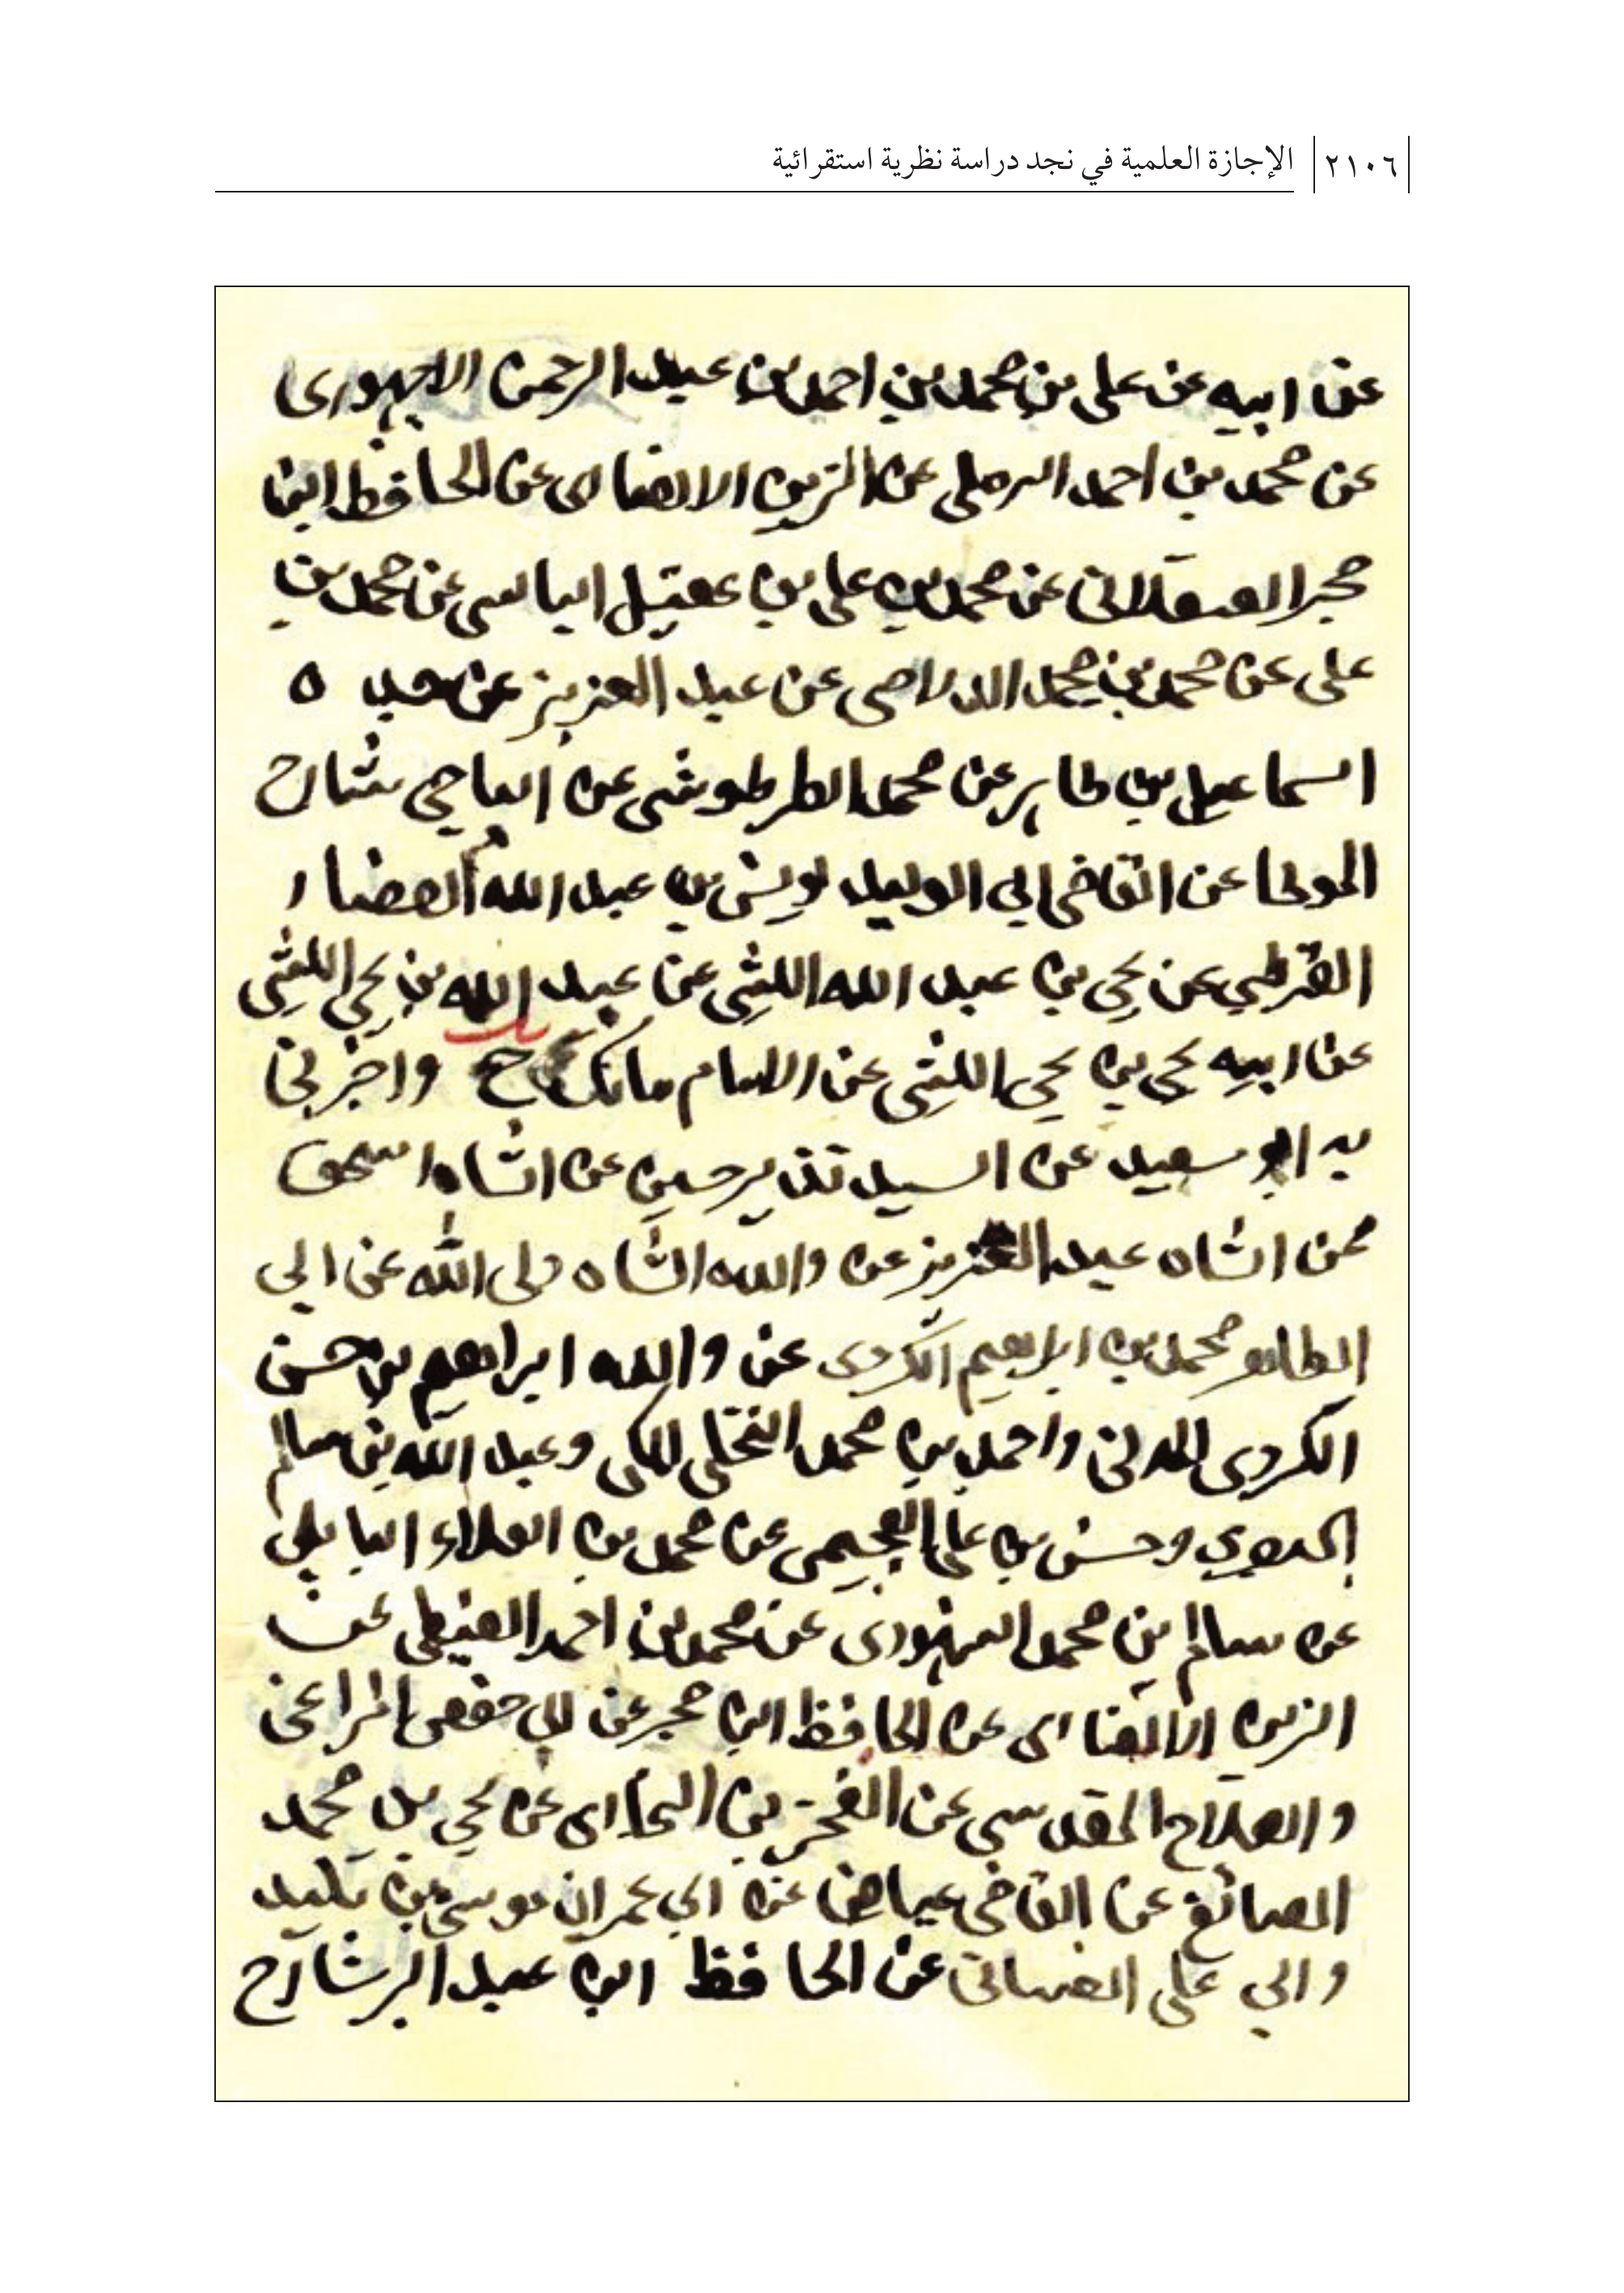 ٢١٠٦ الإجازة العلمية في نجد دراسة نظرية استقرائية
عن ابيه عن على بن محمد بن احمد بن عبد الرحمن الاجهورى
عن محمد بن احمد الرملى عن الزين الانصارى عن الحافظ ابن
حجر العسقلانى عن محمد بن على بن عقيل البالسى عن محمد بن
على عن محمد بن محمد الدلاصى عن عبد العزيز عن جده
اسماعيل بن طاهر عن محمد الطرطوشى عن الباجي شارح
الموطا عن القاضى ابي الوليد يونس بن عبد الله الصفار
القرطبي عن يحي بن عبد الله الليثى عن عبيد الله بن يحي الليثى
عن ابيه يحي بن يحي الليثى عن الامام مالك ح واخبرنى
به ابو سعيد عن السيد نذير حسين عن الشاه اسحق
عن الشاه عبد العزيز عن والده الشاه ولى الله عن ابي
الطاهر محمد بن ابراهيم الكردى عن والده ابراهيم بن حسن
الكردى المدنى واحمد بن محمد النخلى المكى وعبد الله بن سالم
البصري وحسن بن على العجيمى عن محمد بن العلاء البابلى
عن سالم بن محمد السنهورى عن محمد بن احمد الغيطى عن
الزين الانصارى عن الحافظ ابن حجر عن ابي حفص المراغى
والصلاح المقدسي عن الفخر بن البخارى عن يحي بن محمد
الصائغ عن القاضى عياض عن ابي عمران موسى بن تليد
وابي على الغسانى عن الحافظ ابن عبد البر شارح